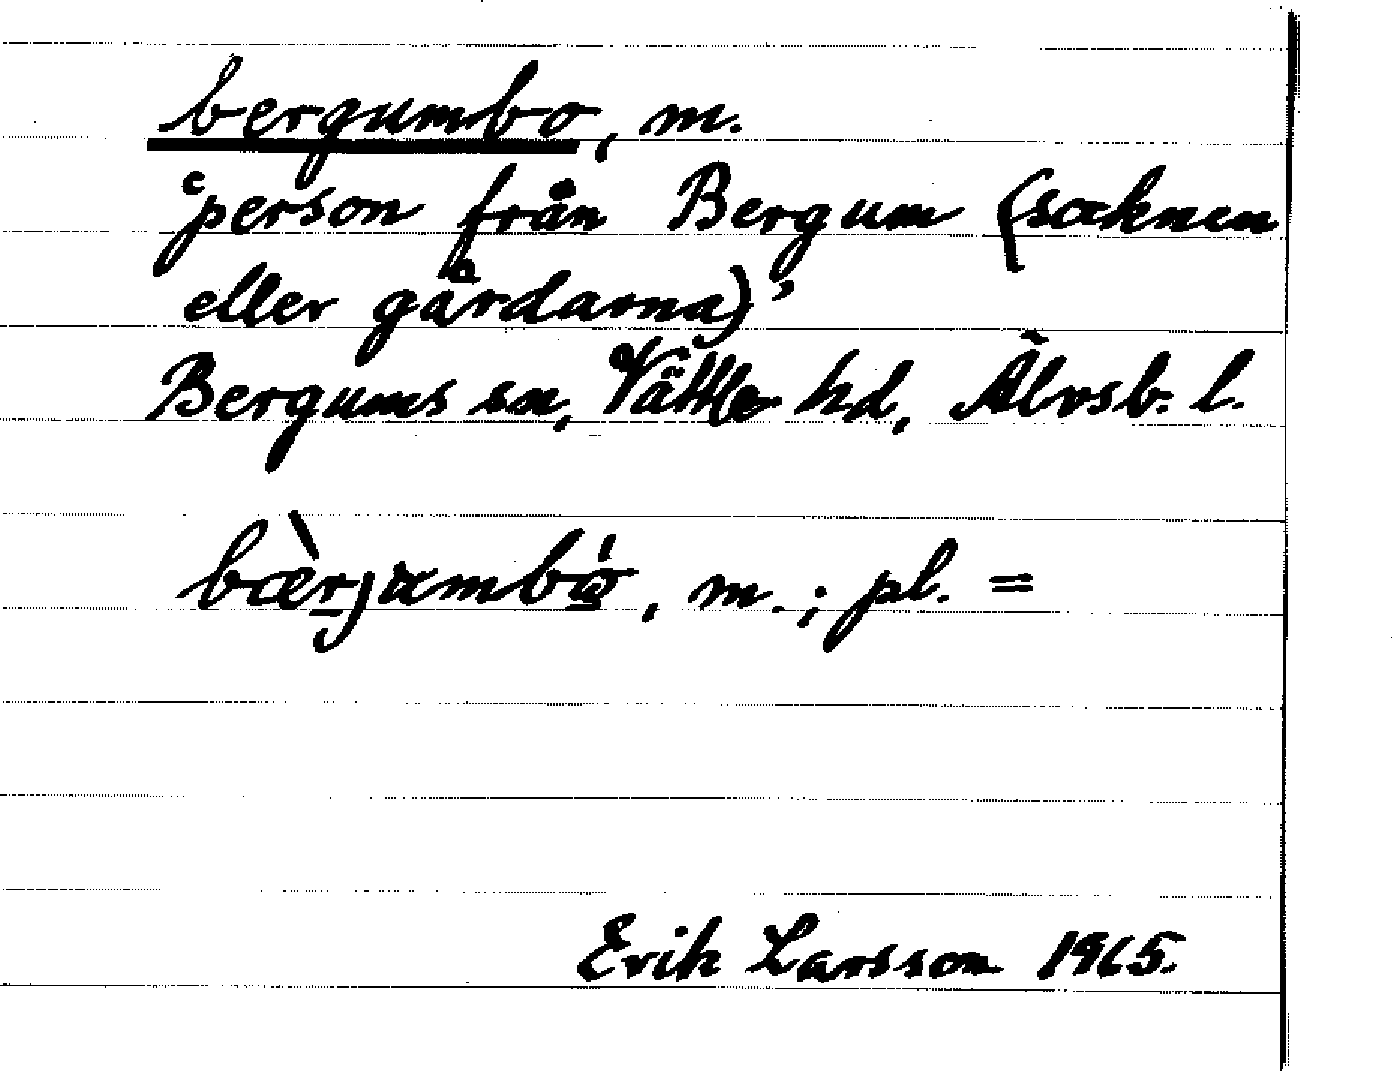 bergumbo, m.
'person från Bergum (socknen
eller gårdarna)'
Bergums sn, Vättle hd, Älvsb. l.
m.; pl. =
Erik Larsson 1965.